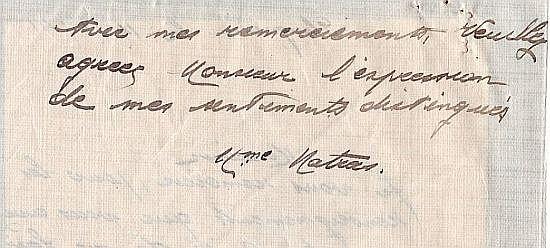 Avec mes remerciements, Veuillez
agréez Monsieur l'expression
de mes sentiments distingués
Mme Natras.